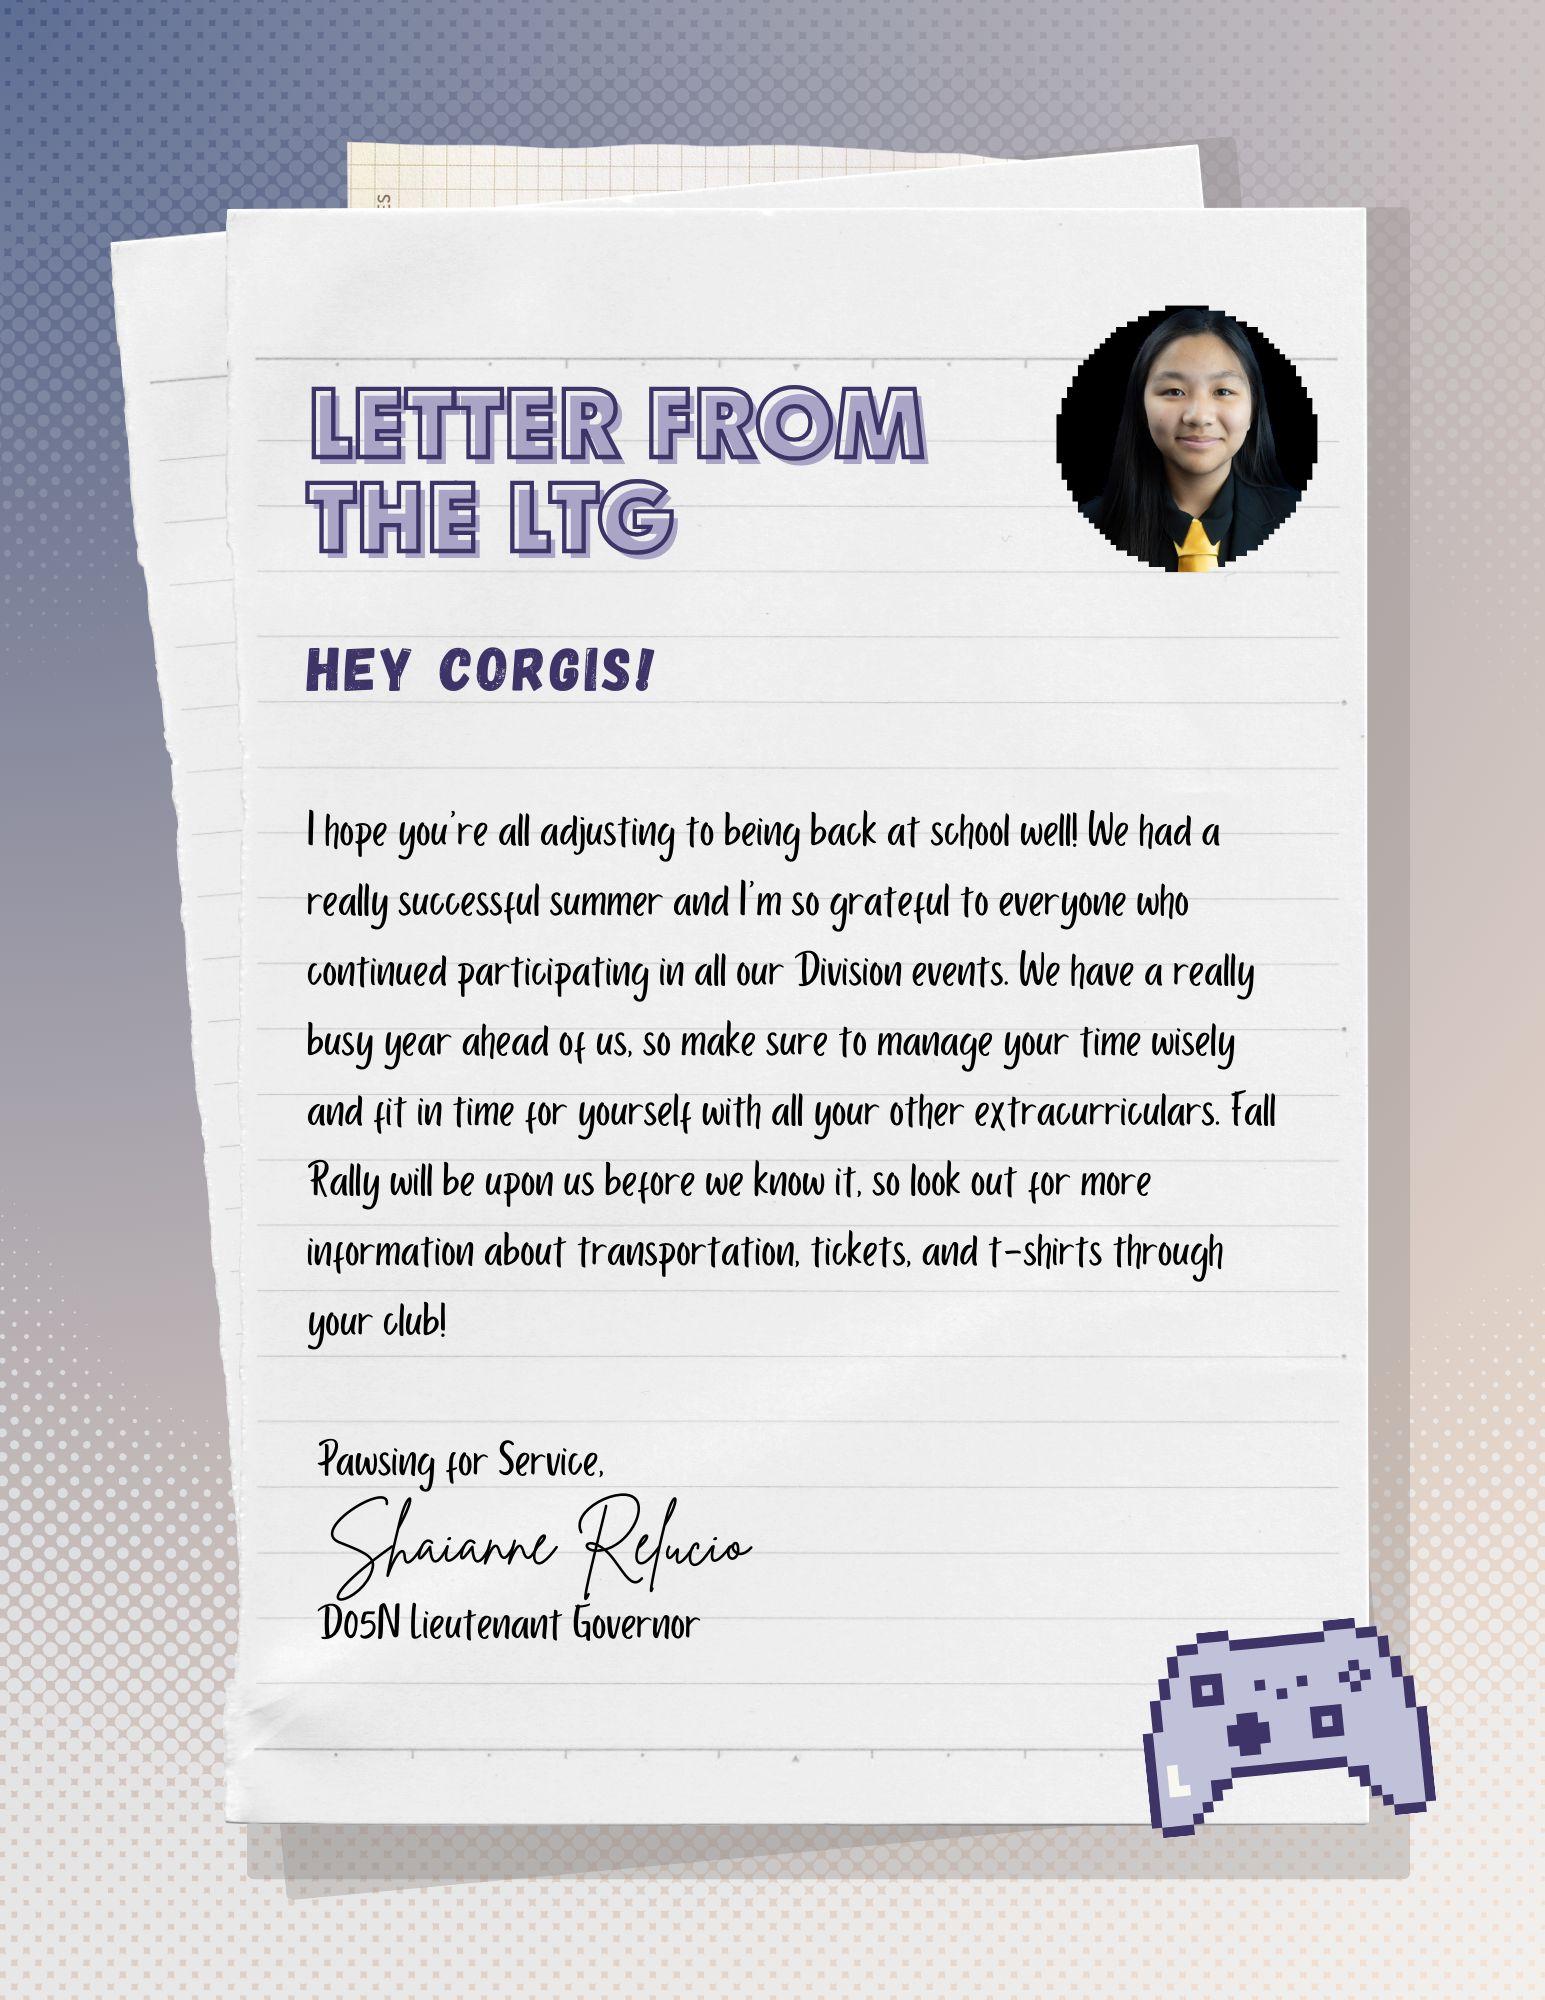 ES
LETTER FROM
THE LTG
HEY CORGIS!
I hope you're all adjusting to being back at school well! We had a
really successful summer and I'm so grateful to everyone who
continued participating in all our Division events. We have a really
busy year ahead of us, so make sure to manage your time wisely
and fit in time for yourself with all your other extracurriculars. Fall
Rally will be upon us before we know it, so look out for more
information about transportation, tickets, and t-shirts through
your club!
Pawsing for Service,
Shaianne Relucio
D05N Lieutenant Governor